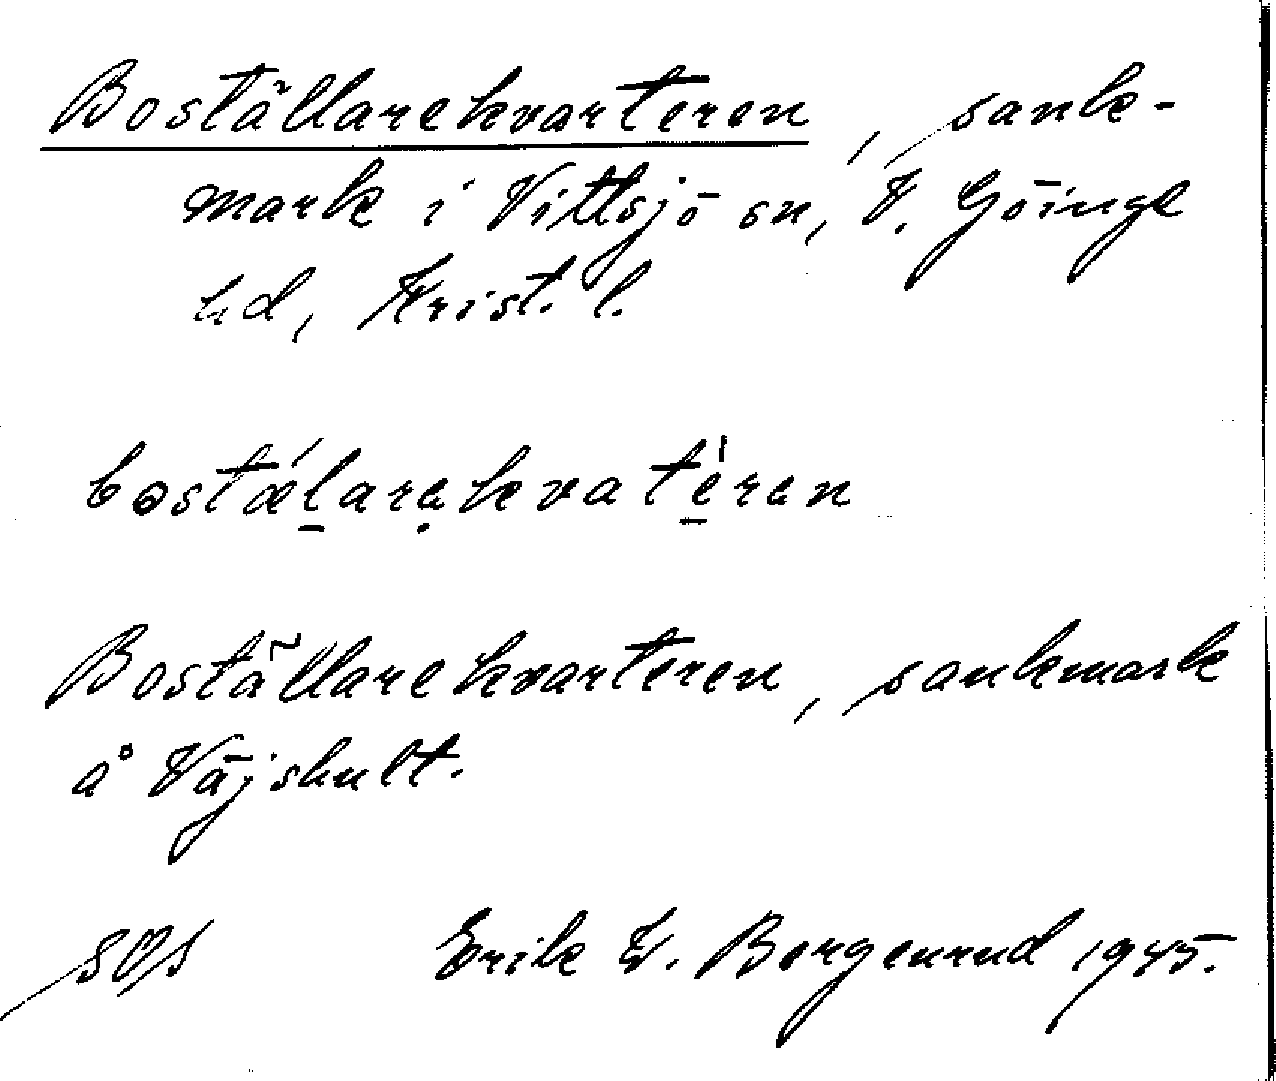 Boställarekvarteren, sank-
mark i Vittsjö sn, V. Göinge
hd, Krist. l.
bostǽlarekvatéren
Boställarekvarteren, sankmark
å Väjshult.
Erik W. Borgenrud 1945.